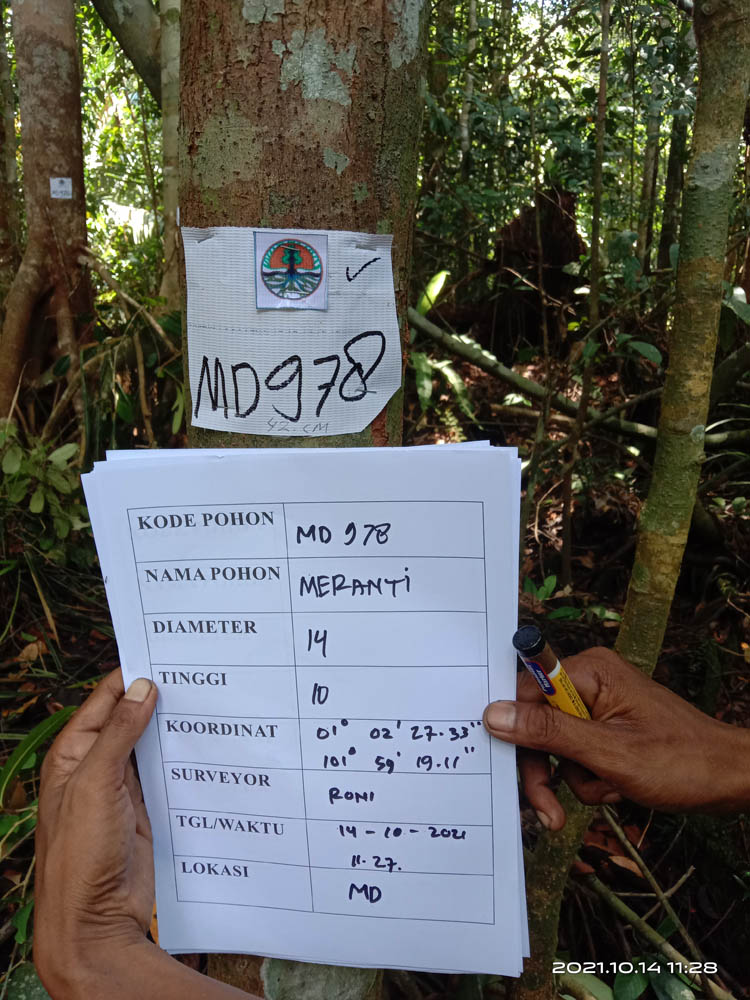 MD978
42.CM
KODE POHON MD 978
NAMA POHON MERANTI
DIAMETER 14
TINGGI 10
KOORDINAT 01° 02' 27.33"
101° 59' 19.11"
SURVEYOR RONI
TGL/WAKTU 14-10-2021
11.27.
LOKASI MD
2021.10.14 11:28